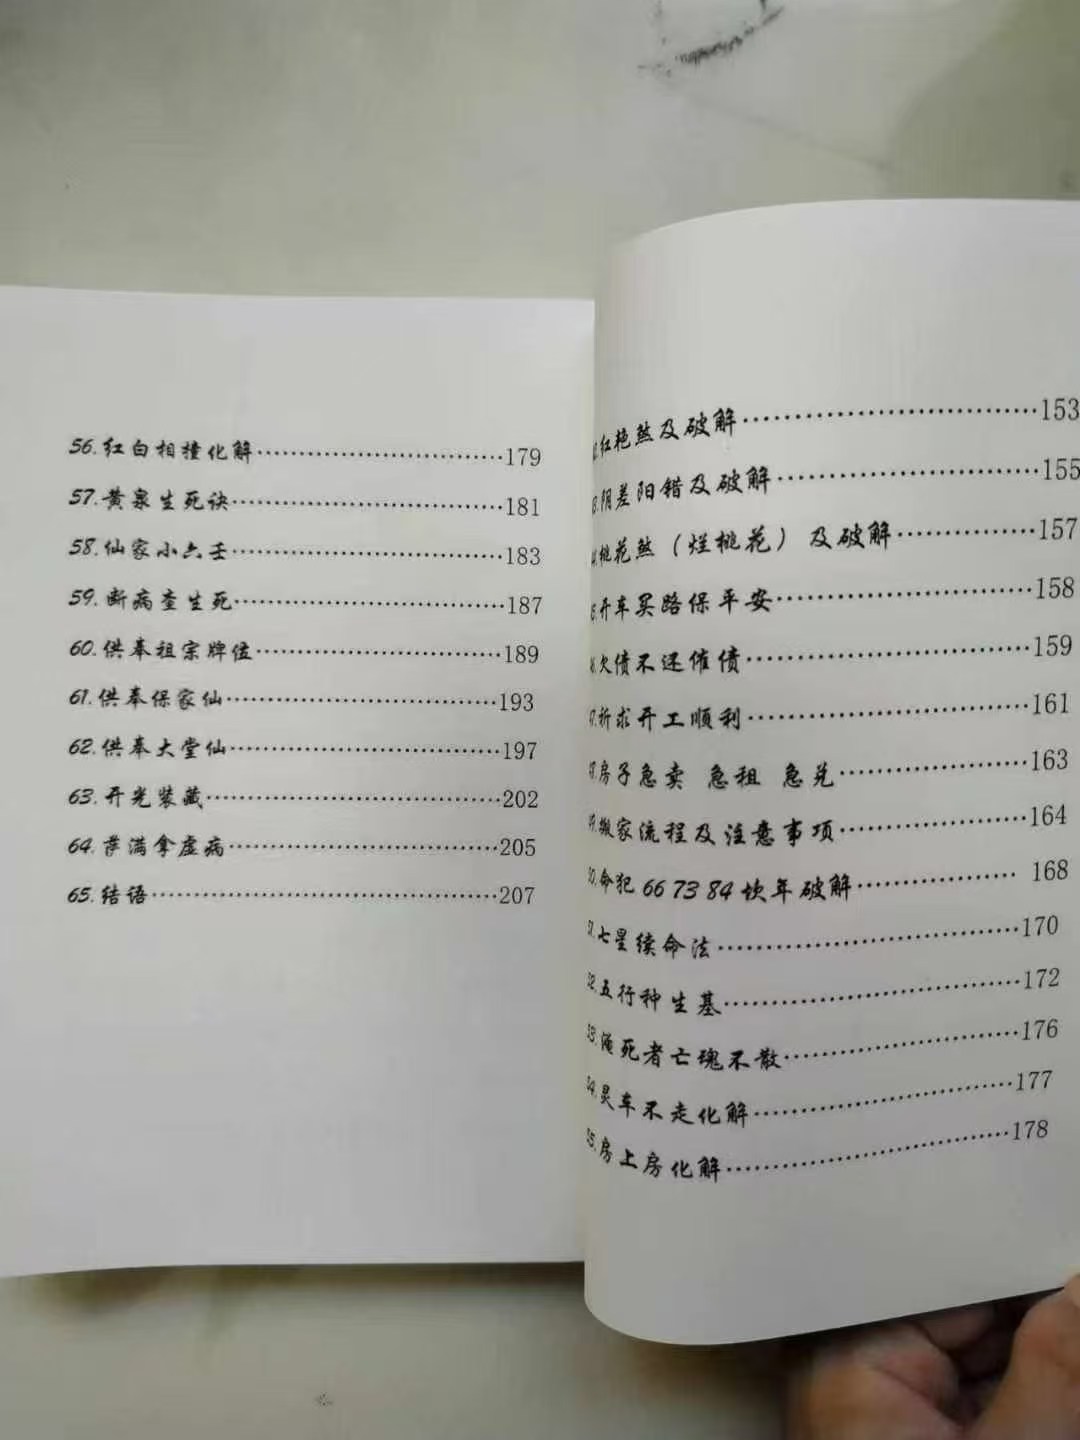 56.红白相撞化解……………………………179
57.黄泉生死诀………………………………181
58.仙家小六壬………………………………183
59.断病查生死………………………………187
60.供奉祖宗牌位……………………………189
61.供奉保家仙………………………………193
62.供奉大堂仙………………………………197
63.开光装藏…………………………………202
64.萨满拿虚病………………………………205
65.结语………………………………………207
2.红艳煞及破解……………………………153
3.阴差阳错及破解…………………………155
4.桃花煞（烂桃花）及破解………………157
5.开车买路保平安…………………………158
6.欠债不还催债……………………………159
7.祈求开工顺利……………………………161
8.房子急卖 急租 急兑……………………163
9.搬家流程及注意事项……………………164
0.命犯 66 73 84 坎年破解………………168
1.七星续命法………………………………170
52.五行种生基………………………………172
53.淹死者亡魂不散…………………………176
54.灵车不走化解……………………………177
55.房上房化解………………………………178